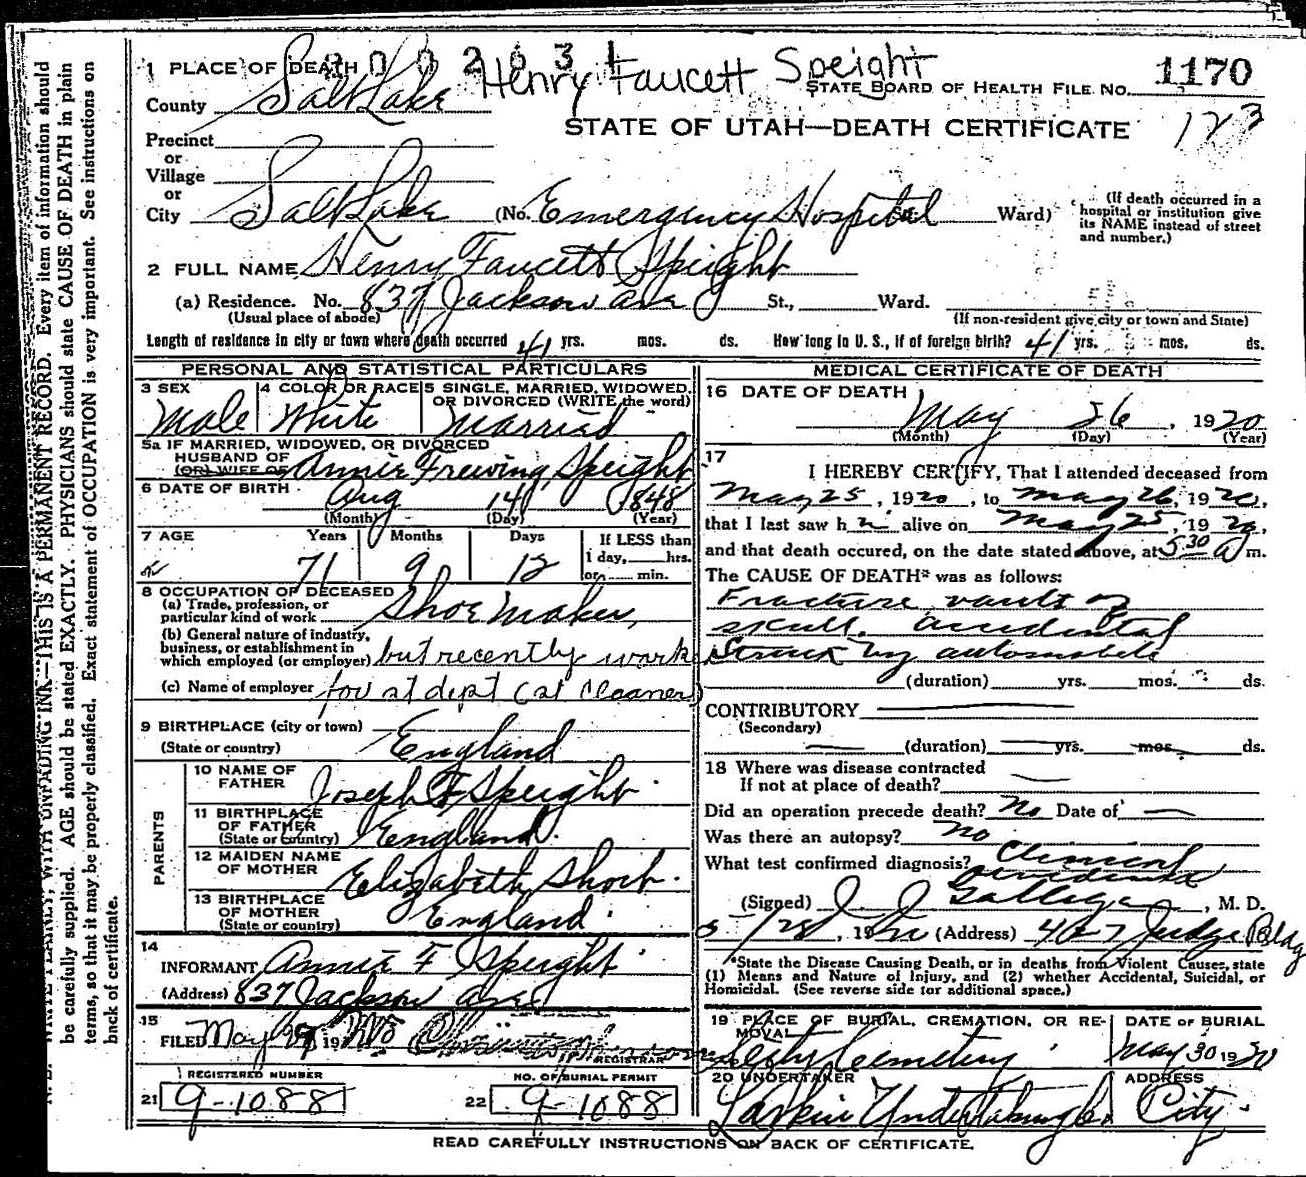 1 PLACE OF DEATH 0 0 2 6 3 1
Henry Faucett Speight
STATE BOARD OF HEALTH FILE NO. 1170
County Salt Lake
STATE OF UTAH—DEATH CERTIFICATE 123
Precinct
or
Village
or
City Salt Lake (No. Emergency Hospital St. Ward)
(If death occurred in a hospital or institution give its NAME instead of street and number.)
2 FULL NAME Henry Faucett Speight
(a) Residence. No. 837 Jackson Ave St., Ward.
(Usual place of abode) (If non-resident give city or town and State)
Length of residence in city or town where death occurred 41 yrs. mos. ds. How long in U. S., if of foreign birth? 41 yrs. mos. ds.
PERSONAL AND STATISTICAL PARTICULARS
3 SEX 4 COLOR OR RACE 5 SINGLE, MARRIED, WIDOWED, OR DIVORCED (WRITE the word)
Male White Married
5a IF MARRIED, WIDOWED, OR DIVORCED
HUSBAND OF
(OR) WIFE OF Annie Frewing Speight
6 DATE OF BIRTH Aug 14 1848
(Month) (Day) (Year)
7 AGE Years Months Days If LESS than
1 day, hrs.
71 9 12 or min.
8 OCCUPATION OF DECEASED
(a) Trade, profession, or
particular kind of work Shoe Maker,
(b) General nature of industry,
business, or establishment in
which employed (or employer) but recently work
(c) Name of employer for st dept (st cleaner)
9 BIRTHPLACE (city or town)
(State or country) England
PARENTS
10 NAME OF
FATHER Joseph F Speight
11 BIRTHPLACE
OF FATHER
(State or country) England.
12 MAIDEN NAME
OF MOTHER Elizabeth Short.
13 BIRTHPLACE
OF MOTHER
(State or country) England.
14
INFORMANT Annie F Speight
(Address) 837 Jackson ave
15
FILED May 19
REGISTRAR
REGISTERED NUMBER NO. OF BURIAL PERMIT
21 9-1088 22 9-1088
MEDICAL CERTIFICATE OF DEATH
16 DATE OF DEATH
May 26, 1920
(Month) (Day) (Year)
17
I HEREBY CERTIFY, That I attended deceased from
May 25, 1920, to May 26, 1920,
that I last saw h alive on May 25, 1920,
and that death occured, on the date stated above, at 5 30 A m.
The CAUSE OF DEATH* was as follows:
Fracture vault of
skull. accidental
Struck by automobile
(duration) yrs. mos. ds.
CONTRIBUTORY
(Secondary)
(duration) yrs. mos. ds.
18 Where was disease contracted
If not at place of death?
Did an operation precede death? No Date of —
Was there an autopsy? no
What test confirmed diagnosis? Clinical
(Signed) J. J. Galligan, M. D.
5/28, 1920 (Address) 407 Judge Bldg
*State the Disease Causing Death, or in deaths from Violent Causes, state
(1) Means and Nature of Injury, and (2) whether Accidental, Suicidal, or
Homicidal. (See reverse side for additional space.)
19 PLACE OF BURIAL, CREMATION, OR RE-
MOVAL
DATE OF BURIAL
City Cemetery May 30 1920
20 UNDERTAKER ADDRESS
Larkin Undertaking Co City.
READ CAREFULLY INSTRUCTIONS ON BACK OF CERTIFICATE.
N. B.—WRITE PLAINLY, WITH UNFADING INK—THIS IS A PERMANENT RECORD. Every item of information should
be carefully supplied. AGE should be stated EXACTLY. PHYSICIANS should state CAUSE OF DEATH in plain
terms, so that it may be properly classified. Exact statement of OCCUPATION is very important. See instructions on
back of certificate.